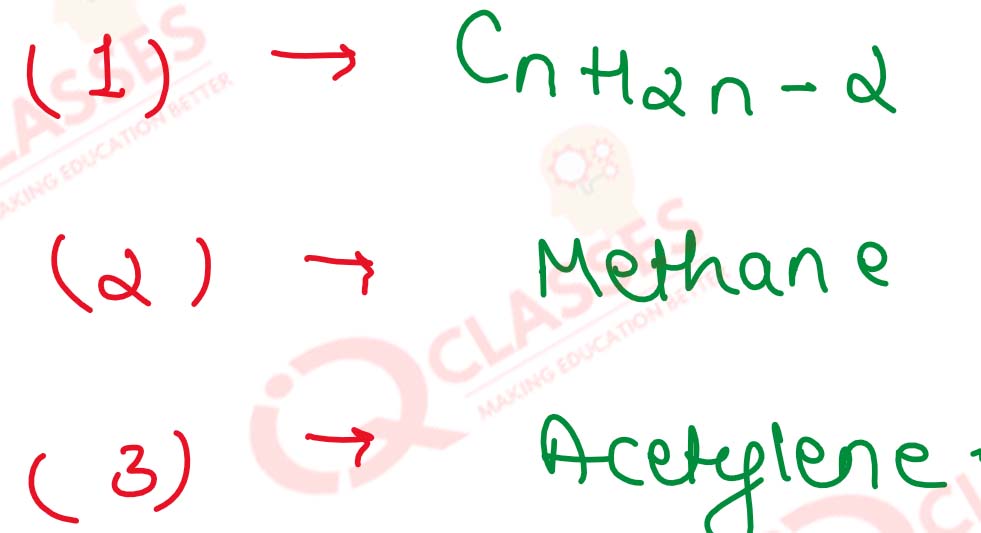 (1) → CnH2n-2
(2) → Methane
(3) → Acetylene
CLASSES
MAKING EDUCATION BETTER
iQ CLASSES
MAKING EDUCATION BETTER
CL